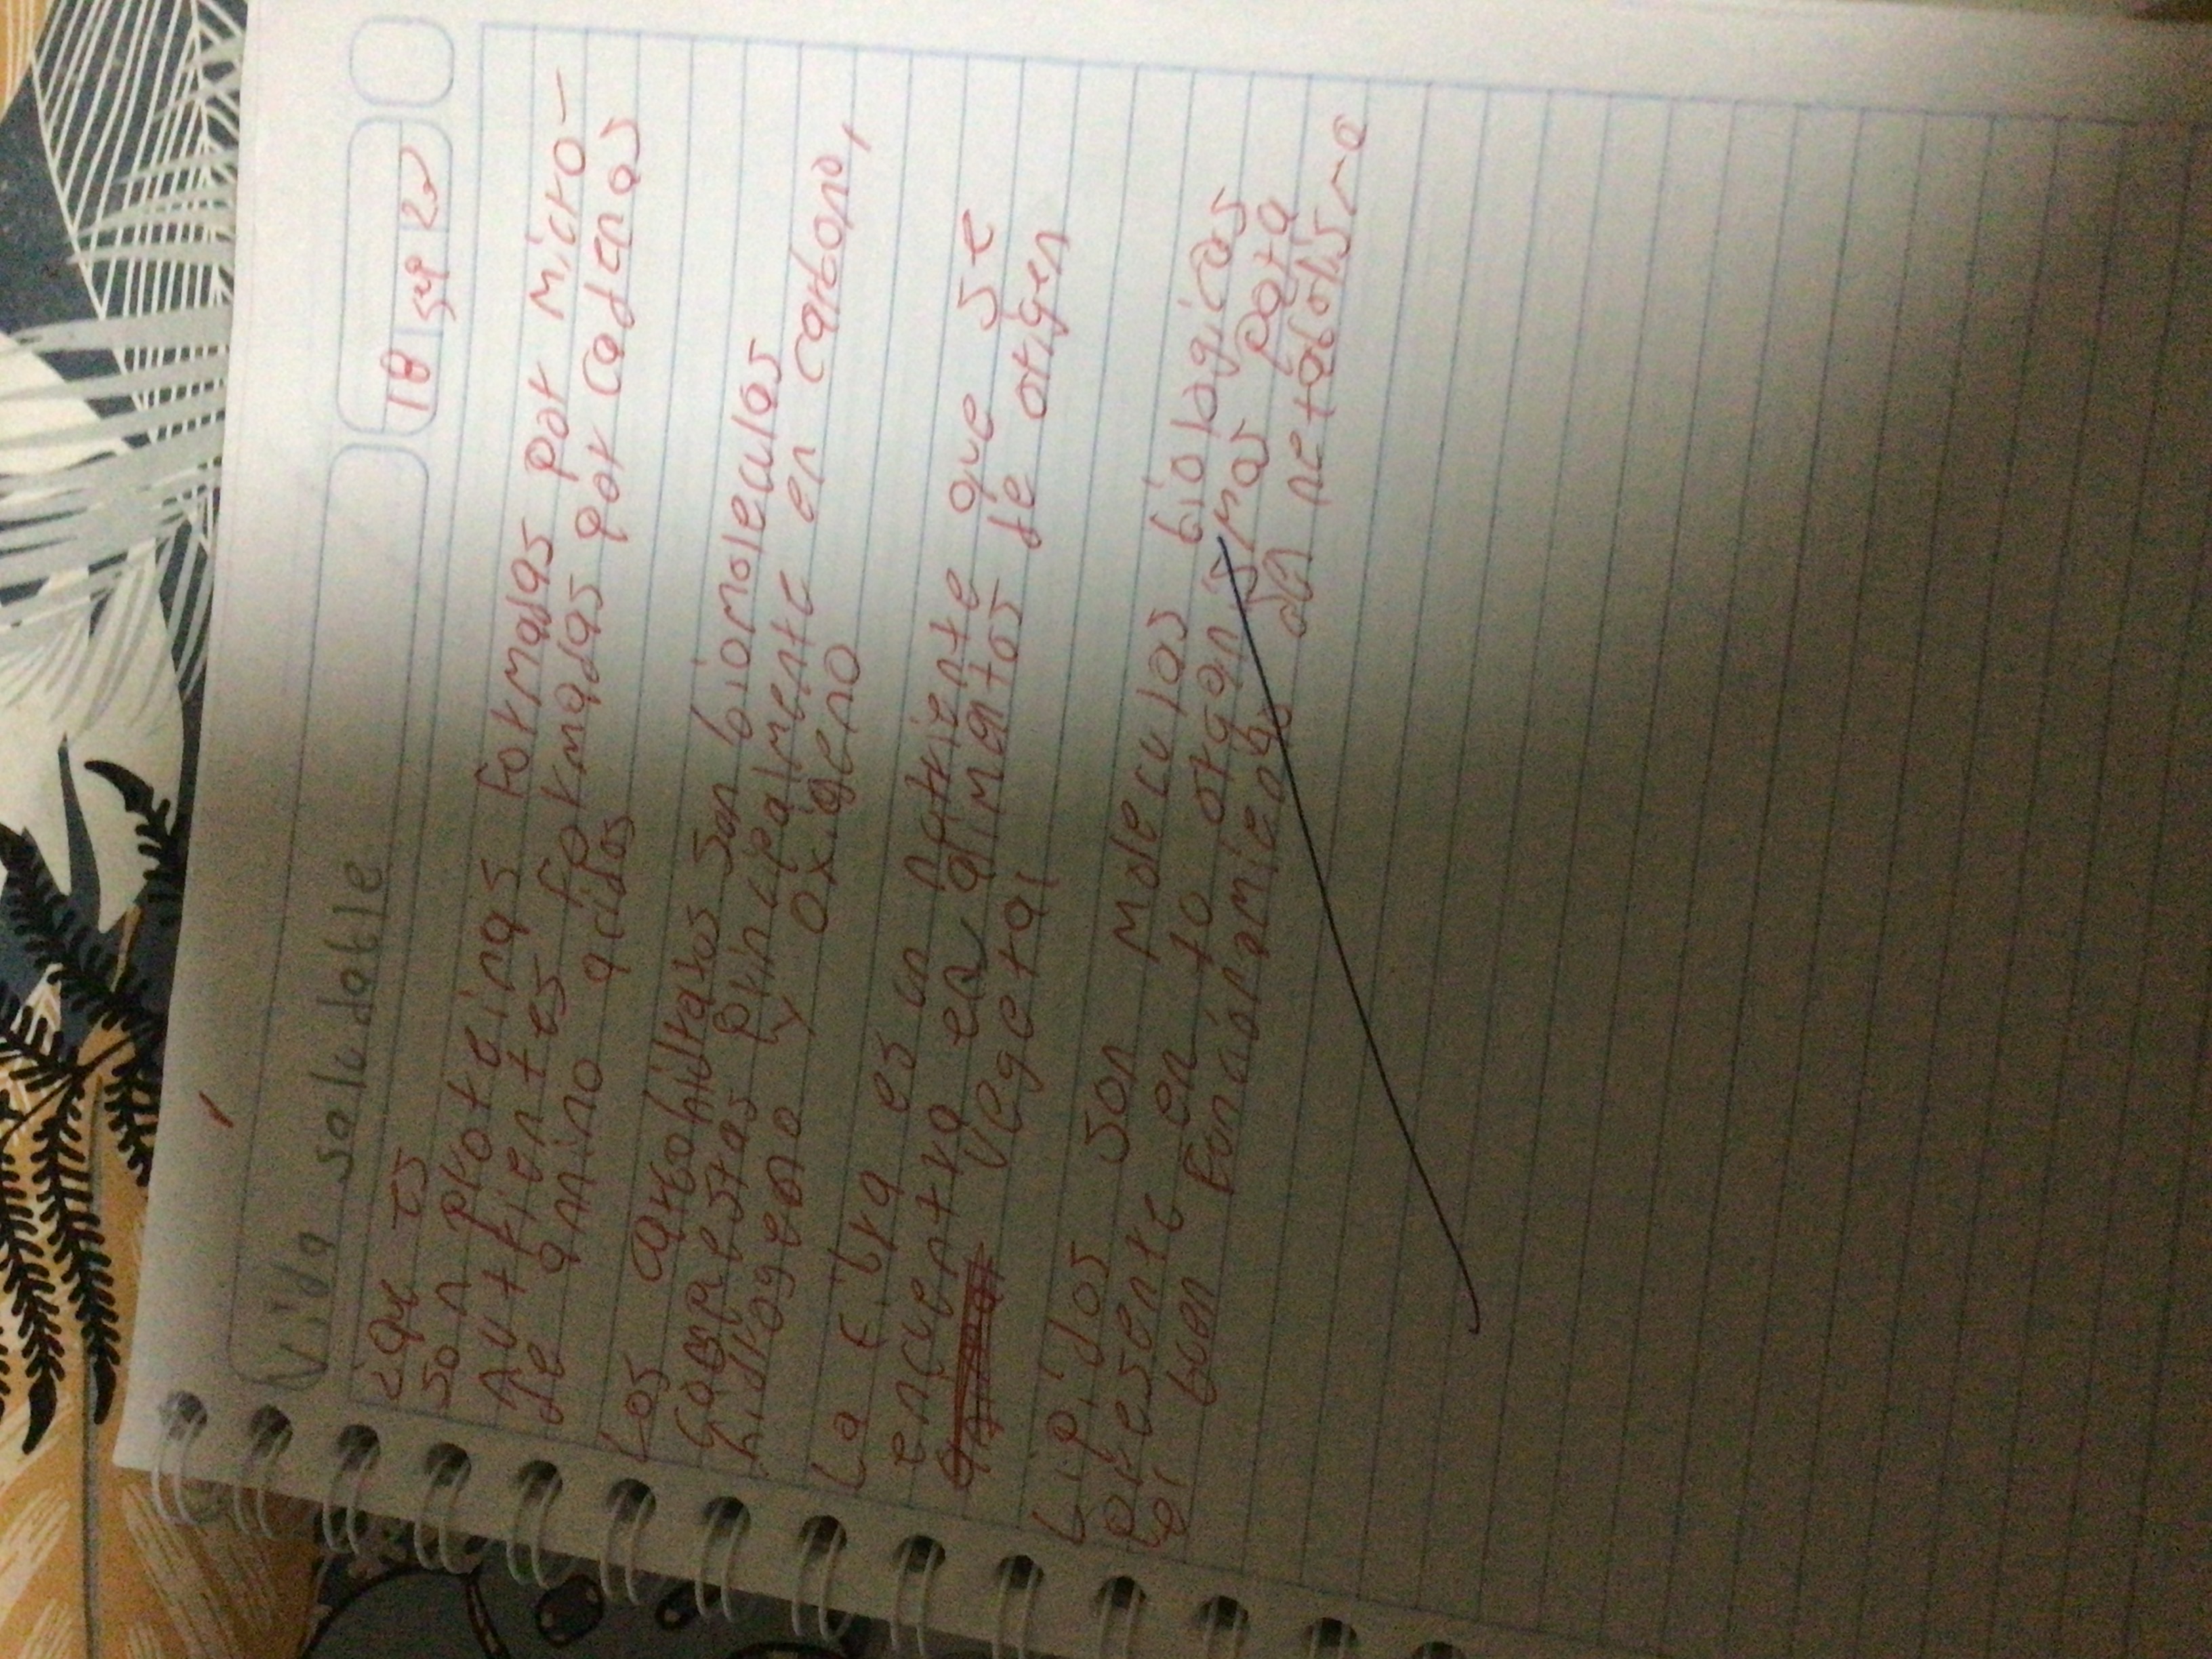 Vida saludable
18 sep 2
¿Que es
Son proteinas Formadas por micro-
nutrientes formadas por cadenas
de amino acidos
Los carbohidratos son biomoleculas
compuestas principalmente en carbono,
hidrogeno y oxigeno
La fibra es un nutriente que se
encuentra en alimentos de origen
vegetal
Lipidos son moleculas biologicas
presente en to organismos para
el buen Funcionamiento del metabolismo